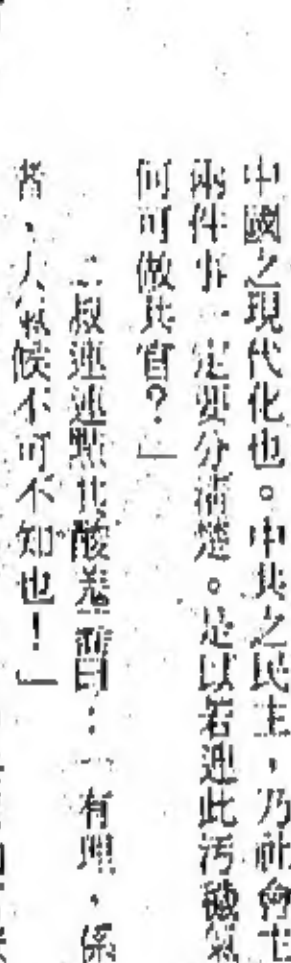 中國之現代化也。中共之民主,乃社會主
兩件事一定要分清楚。是以若迎此污穢氣
何可做共官?」
二叔連連點其酸羌薑曰:「有理,係
者,人氣候不可不知也!」